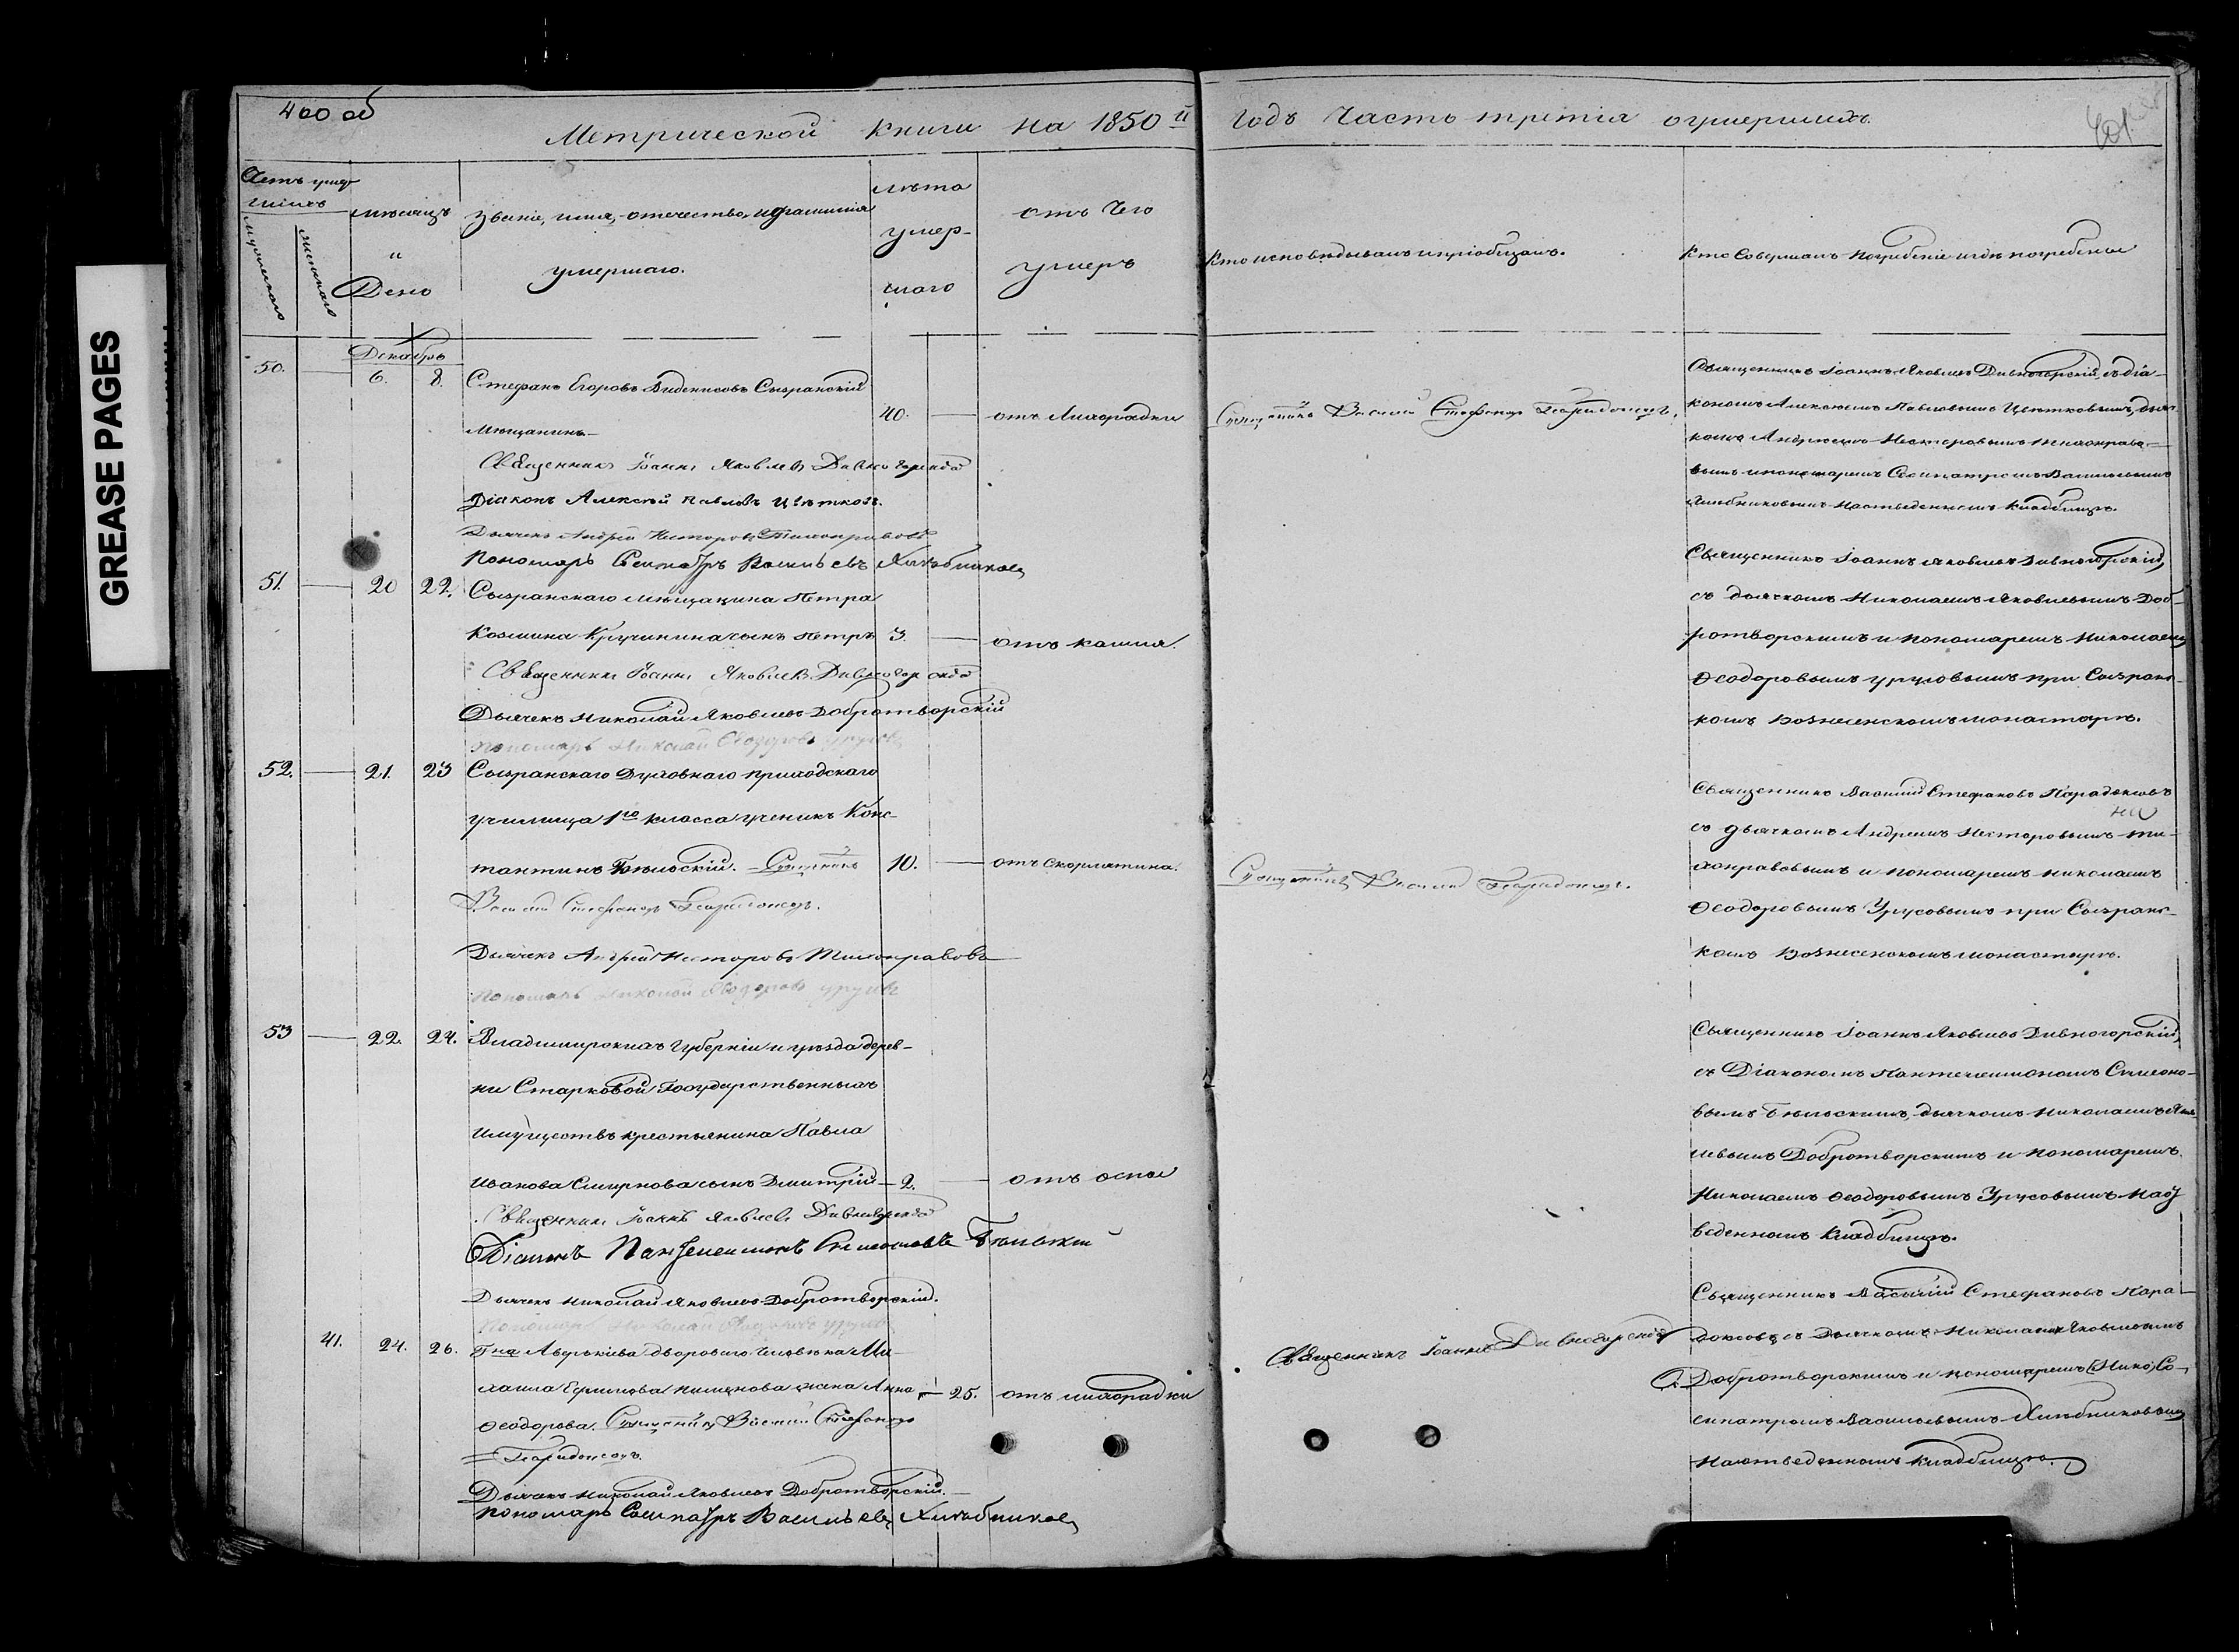 GREASE PAGES
400 об
Метрической книги на 1850й
годъ Часть третія о умершихъ.
401
мѣсяцъ
и
День
мужескаго
женскаго
Званіе, имя, отечество, и фамилія
умершаго.
лѣта
умер-
шаго
отъ чего
умеръ
Кто исповѣдывалъ и пріобщалъ.
Кто Совершалъ погребеніе и гдѣ погребены
Декабрь
50. 6. 8. Стефанъ Егоровъ Сызранскій
мѣщанинъ
40. отъ Лихорадки
Священникъ Іоаннъ Яковлевъ Дивногорскій
Діаконъ Алексѣй Павловъ Цвѣтковъ.
Дьячекъ Андрей Несторовъ Тихонравовъ
Пономарь Сосипатръ Васильевъ Хлѣбниковъ
Священникъ Василій Стефановъ Парадоксовъ.
Священникъ Іоаннъ Яковлевъ Дивногорскій, съ діа-
кономъ Алексѣемъ Павловымъ Цвѣтковымъ, дьяч-
комъ Андреемъ Несторовымъ Тихонраво-
вымъ и пономаремъ Сосипатромъ Васильевымъ
Хлѣбниковымъ на отведенномъ Кладбищѣ.
51. 20 22. Сызранскаго мѣщанина Петра
Козмина Кручинина сынъ Петръ 3. отъ кашля.
Священникъ Іоаннъ Яковлевъ Дивногорскій
Дьячекъ Николай Яковлевъ Добротворскій
Пономарь Николай Ѳеодоровъ Урусовъ
Священникъ Іоаннъ Яковлевъ Дивногорскій,
съ дьячкомъ Николаемъ Яковлевымъ Доб-
ротворскимъ и пономаремъ Николаемъ
Ѳеодоровымъ Урусовымъ при Сызранс-
комъ Вознесенскомъ монастырѣ.
52. 21. 23 Сызранскаго Духовнаго приходскаго
училища 1го класса ученикъ Конс-
тантинъ Бѣльскій. Священникъ 10. отъ Скорлатина.
Василій Стефановъ Парадоксовъ.
Дьячекъ Андрей Несторовъ Тихонравовъ
Пономарь Николай Ѳеодоровъ Урусовъ
Священникъ Василій Парадоксовъ.
Священникъ Василій Стефановъ Парадоксовъ
съ дьячкомъ Андреемъ Несторовымъ Ти-
хонравовымъ и пономаремъ Николаемъ
Ѳеодоровымъ Урусовымъ при Сызранс-
комъ Вознесенскомъ монастырѣ.
53 22. 24. Владимирскихъ Губерніи и уѣзда дерев-
ни Старковой Государственныхъ
имуществъ крестьянина Павла
Иванова Смирнова сынъ Дмитрій 2. отъ оспы
Священникъ Іоаннъ Яковлевъ Дивногорскій
Діаконъ Пантелеимонъ Симеоновъ Бѣльскій
Дьячекъ Николай Яковлевъ Добротворскій.
Пономарь Николай Ѳеодоровъ Урусовъ
Священникъ Іоаннъ Яковлевъ Дивногорскій,
съ Діакономъ Пантелеимономъ Симеоно-
вымъ Бѣльскимъ, дьячкомъ Николаемъ Яков-
левымъ Добротворскимъ и пономаремъ
Николаемъ Ѳеодоровымъ Урусовымъ на от
веденномъ Кладбищѣ.
41. 24. 26. Гна Аверкіева двороваго человѣка Ми-
хаила Ермилова Пименова жена Анна 25. отъ лихорадки
Ѳеодорова. Священникъ Василій Стефановъ
Парадоксовъ.
Дьячекъ Николай Яковлевъ Добротворскій.
Пономарь Сосипатръ Васильевъ Хлѣбниковъ
Священникъ Іоаннъ Дивногорскій
Священникъ Василій Стефановъ Пара
доксовъ, съ Дьячкомъ Николаемъ Яковлевымъ
Добротворскимъ и пономаремъ (Нико) Со-
сипатромъ Васильевымъ Хлѣбниковымъ
на отведенномъ Кладбищѣ.